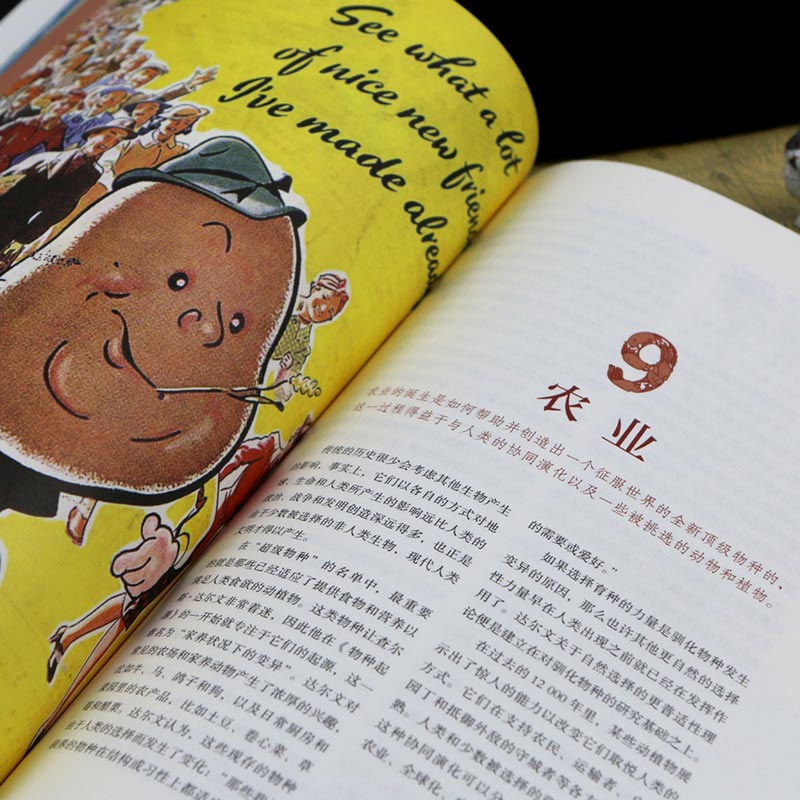 See what a lot
of nice new
I've made
9
农业
农业的诞生是如何帮助并创造出一个征服世界的全新顶级物种的，
这一过程得益于与人类的协同演化以及一些被挑选的动物和植物。
传统的历史很少会考虑其他生物产生
的影响。事实上，它们以各自的方式对地
球、生命和人类所产生的影响远比人类的
政治、战争和发明创造深远得多，也正是
由于少数被选择的非人类生物，现代人类
文明才得以产生。
在“超级物种”的名单中，最重要
的就是那些已经适应了提供食物和营养以
满足人类食欲的动植物。这类物种让查尔
斯·达尔文非常着迷，因此他在《物种起
源》的一开始就专注于它们的起源，这一
章名为“家养状况下的变异”。达尔文对
常见的农场和家养动物产生了浓厚的兴趣，
比如牛、马、鸽子和狗，以及日常厨房和
菜园里的农产品，比如土豆、卷心菜、草
莓和醋栗。达尔文认为，这些现存的物种
由于人类的选择而发生了变化：“那些我
饲养的物种在结构或习性上都
的需要或爱好。”
如果选择育种的力量是驯化物种发生
变异的原因，那么也许其他更自然的选择
性力量早在人类出现之前就已经在发挥作
用了。达尔文关于自然选择的更普适性理
论便是建立在对驯化物种的研究基础之上。
在过去的 12 000 年里，某些动植物展
示出了惊人的能力以改变它们取悦人类的
方式。它们在支持农民、运输者、
园丁和抵御外敌的守城者等各
熟。人类和少数被选择的
这种协同演化可以分
农业、全球化、